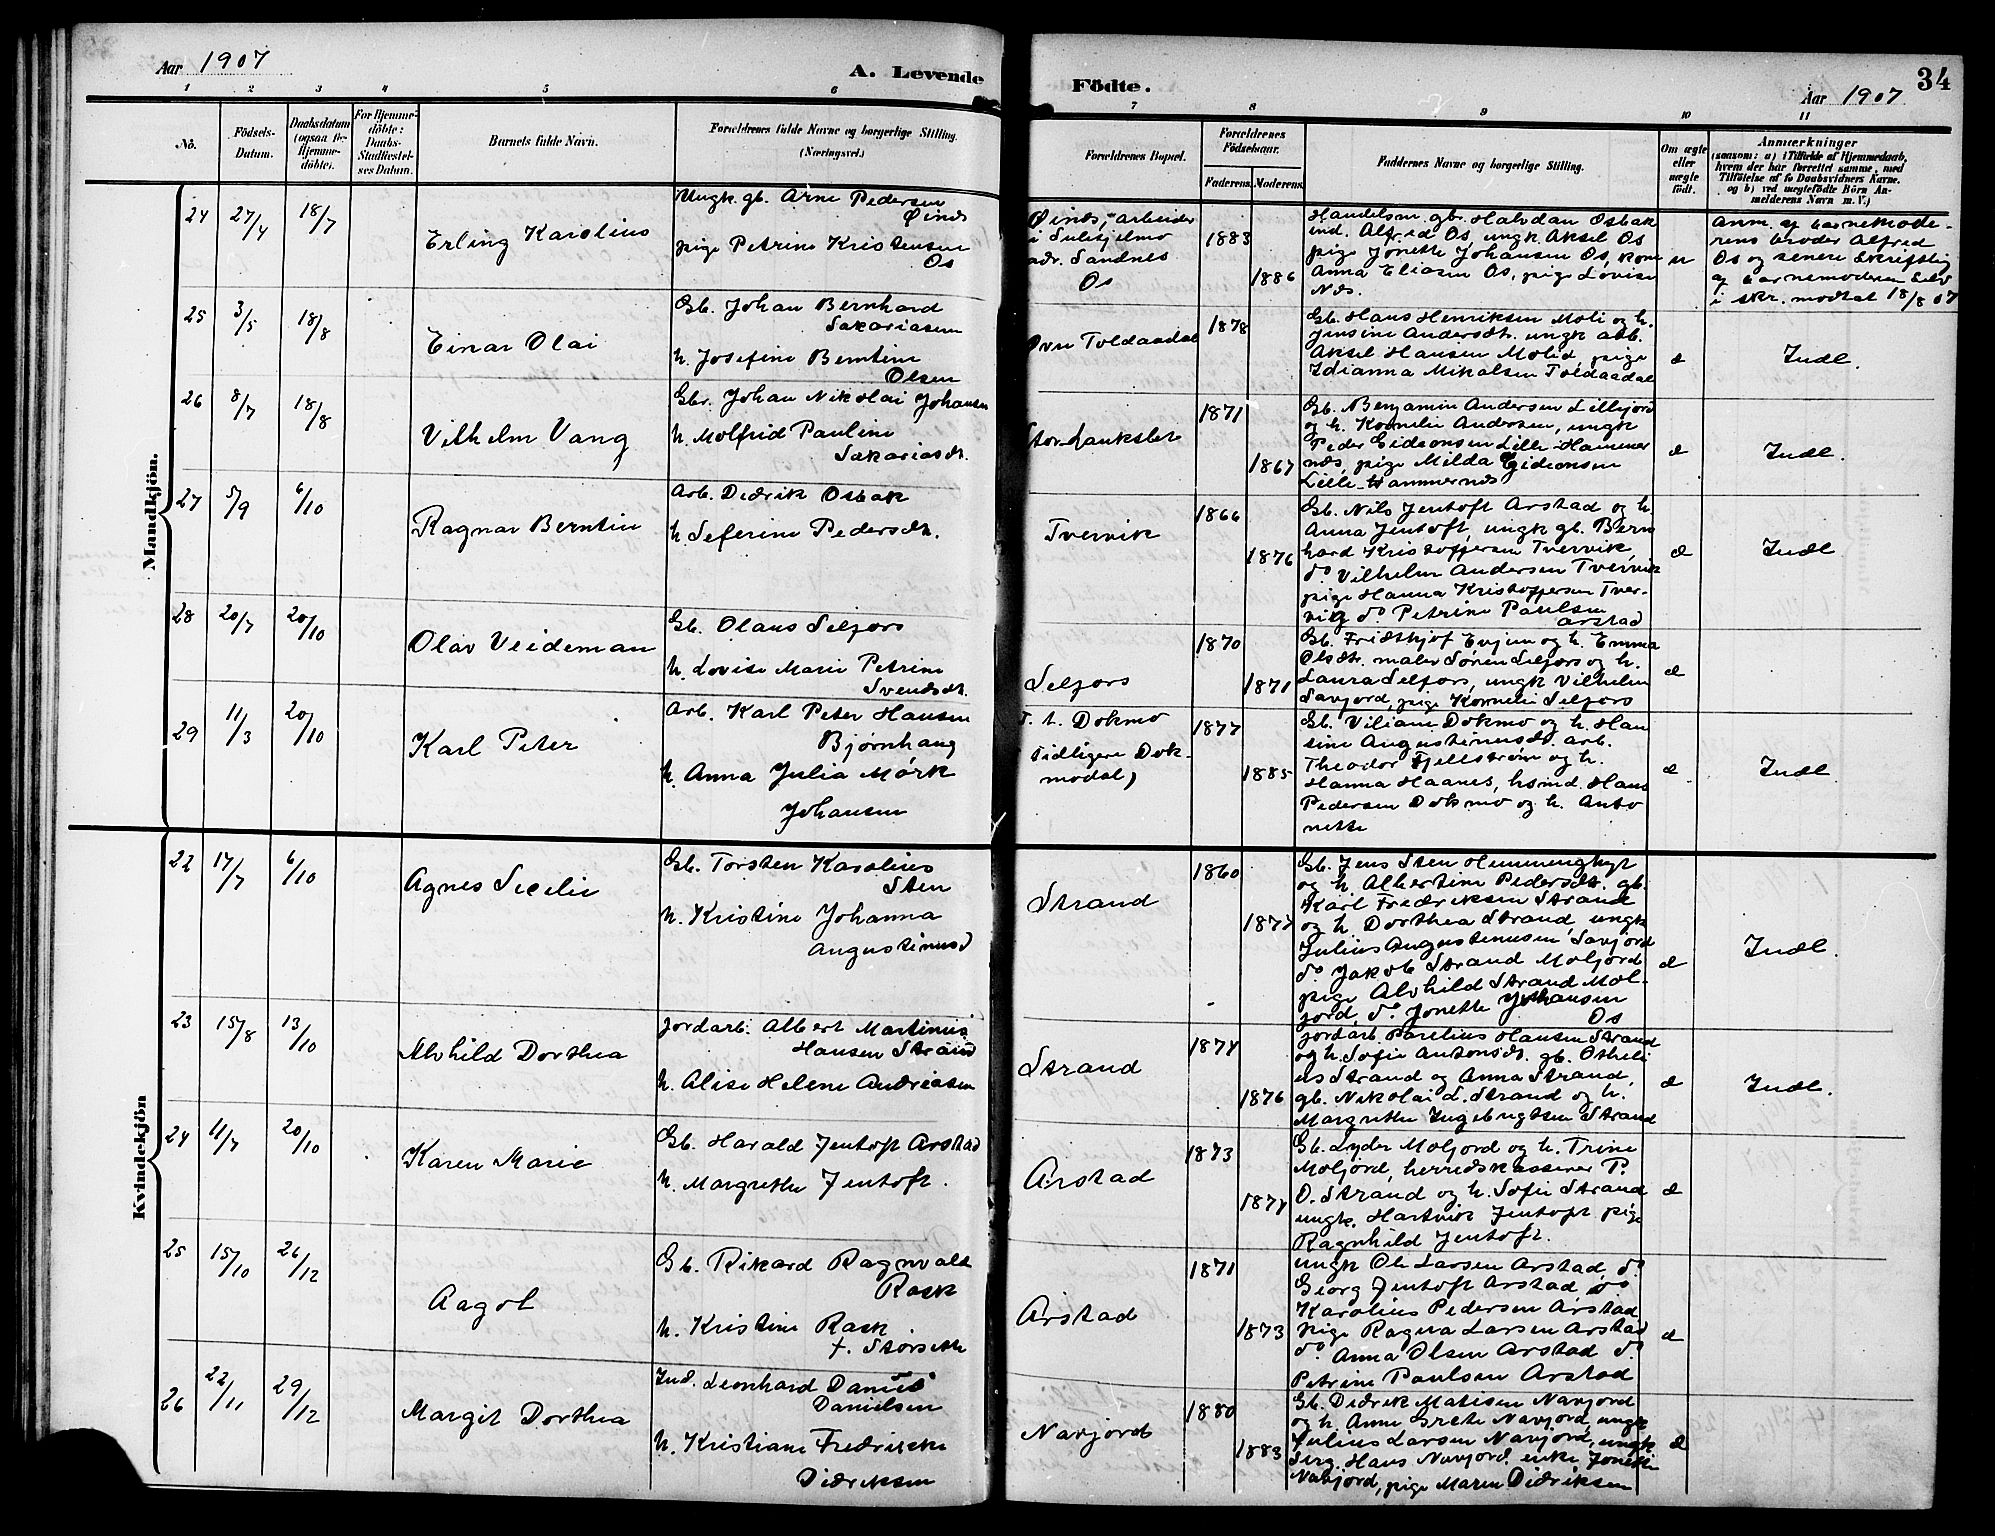 Aar 1907
A. Levende
Födte.
34
Aar 1907
1 2 3 4 5 6 7 8 9 10 11
No.
Födsels-
Datum.
Daabsdatum
(ogsaa for
Hjemme-
döbte).
For Hjemme-
döbte:
Daabs-
Stadfæstel-
ses Datum.
Barnets fulde Navn.
Forældrenes fulde Navne og borgerlige Stilling.
(Næringsvei.)
Forældrenes Bopæl.
Forældrenes
Födselsaar.
Faderens. Moderens.
Faddernes Navne og borgerlige Stilling.
Om ægte
eller
uægte
födt.
Anmærkninger
(saasom: a) i Tilfælde af Hjemmedaab,
hvem der har forrettet samme, med
Tilföielse af to Daabsvidners Navne,
og b) ved uægtefödte Börn An-
melderens Navn m. V.)
Mandkjön.
24 27/4 18/7
Erling Karolius
Ungk. gb. Arne Pedersen
Øinds
pige Petrine Kristensen
Os
Øinds, arbeider
i Sulitjelma
adr. Sandnes
Os
1883
1886
Handelsm. gbr. Halvdan Osbak
ind. Alfred Os ungk. Aksel Os
pige Jonette Johansen Os, kone
Anna Eliasen Os, pige Lovise
Nds.
u
anm. af barnemode-
rens broder Alfred
Os og senere skriftlig
af barnemoderen selv
i skr. modtat 18/8 07
25 3/5 18/8
Einar Olai
Gb. Johan Bernhard
Sakariasen
h. Josefine Berntine
Olsen
Øvre Toldaadal
1878
Gb. Hans Henriksen Moli og h.
Jensine Andersdt. ungk. arb.
Aksel Hansen Molid, pige
Idianna Mikalsen Toldaadal
æ
Indl.
26 8/7 18/8
Vilhelm Vang
Gbr. Johan Nikolai Johansen
h. Molfrid Pauline
Sakariasdt.
Stor-Lankslet
1871
1867
Gb. Benjamin Andersen Lillfjord
og h. Kornelie Andersen, ungk
Peder Gideonsen Lille-Hammer
nds, pige Milda Gideonsen
Lille-Hammernds
æ
Indl.
27 5/9 6/10
Ragnar Berntin
Arb. Didrik Osbak
h. Seferine Pedersdt.
Tvervik
1866
1876
Gb. Nils Jentoft Arstad og h.
Anna Jentoft, ungk gb. Bern
hard Kristoffersen Tvervik,
do Vilhelm Andersen Tvervik
pige Hanna Kristoffersen Tver-
vig do Petrine Paulsen
Arstad
æ
Indl
28 20/7 20/10
Olav Veideman
Gb. Olaus Selfors
h. Lovise Marie Petrine
Svendsdt.
Selfors
1870
1871
Gb. Fridthjof Evjen og h. Emma
Olsdtr. maler Søren Selfors og h.
Laura Selfors, ungk Vilhelm
Savjord, pige Kornelie Selfors
æ
29 11/3 20/10
Karl Peter
Arb. Karl Peter Hansen
Bjørnhaug
h. Anna Julia Mørk
Johansen
f. t. Dokmo
(tidligere Dok-
modal)
1877
1885
Gb. Viliam Dokmo og h. Han
sine Augustinusdt. arb.
Theodor Fjellstrøm og h.
Hanna Haanes, husmd. Hans
Pedersen Dokmo og h. Anto
nette
æ
Indl.
Kvindekjön
22 17/7 6/10
Agnes Secelie
Gb. Torsten Karolius
Sten
h. Kristine Johanna
Augustinusd
Strand
1860
1877
Gb. Jens Sten Hemminghyt
og h. Albertine Pedersdt. gb.
Karl Fredriksen Strand
og h. Dorthea Strand ungk
Julius Augustinusen Savjord
do Jakob Strand Moljord
pige Alvhild Strand Mol-
jord, do Jonette Johansen
Os
æ
Indl.
23 15/8 13/10
Alvhild Dorthea
Jordarb. Albert Martinus
Hansen Strand
h. Alise Helene Andreasen
Strand
1874
1876
Jordarb. Parelius Hansen Strand
og h. Sofie Antonsdt. gb. Otheli
us Strand og Anna Strand,
gb. Nikolai L. Strand og h.
Margrethe Ingebrigtsen Strand
æ
Indl.
24 11/7 20/10
Karen Marie
Gb. Harald Jentoft Arstad
h. Margrethe Jentoft.
Arstad
1873
1874
Gb. Lyder Moljord og h. Trine
Moljord, herredskasserer P.
O. Strand og h. Sofie Strand
ungk. Hartvik Jentoft pige
Ragnhild Jentoft.
æ
25 15/10 26/12
Aagot
Gb. Rikard Ragnvald
Rask
h. Kristine Rask
f. Storseth
Arstad
1871
1873
ungk Ole Larsen Arstad, do
Georg Jentoft Arstad do
Karolius Pedersen Arstad
pige Ragna Larsen Arstad
do Anna Olsen Arstad do
Petrine Paulsen Arstad
æ
26 22/11 29/12
Margit Dorthea
Ind. Leonhard Daniel
Danielsen
h. Kristiane Fredrikke
Didriksen
Navjord
1880
1883
Gb. Didrik Matisen Navjord
og h. Anne Grete Navjord, ungk
Julius Larsen Navjord, ungk
Serg. Hans Navjord, enke Jonette
Navjord, pige Maren Didriksen
æ